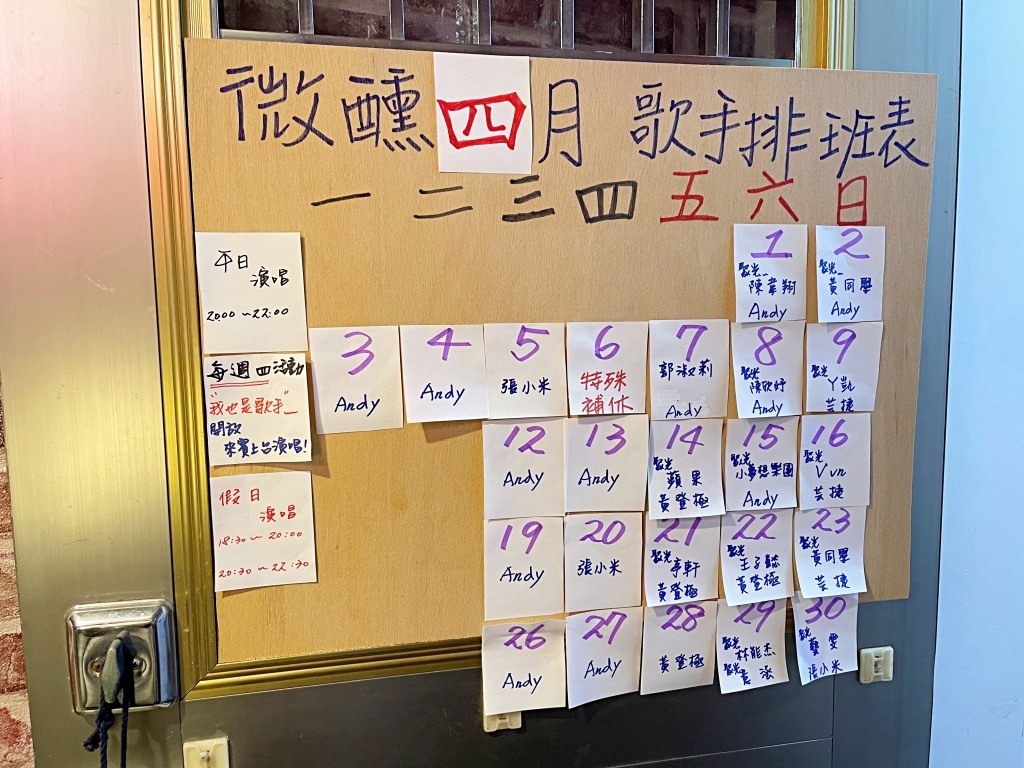 微醺四月 歌手排班表
一 二 三 四 五 六 日
平日
演唱
20:00~22:00
每週四活動
"我也是歌手"
開放
來賓上台演唱!
假日
演唱
18:30~20:00
20:30~22:30
1
聚光
陳韋翔
Andy
2
聚光
黃同學
Andy
3
Andy
4
Andy
5
張小米
6
特殊
補休
7
郭淑莉
Andy
8
聚光
陳欣妤
Andy
9
聚光
丫凱
芸捷
12
Andy
13
Andy
14
聚光
蘋果
黃登極
15
聚光
小夢想樂團
Andy
16
聚光
Vvn
芸捷
19
Andy
20
張小米
21
聚光
亭軒
黃登極
22
聚光
王子懿
黃登極
23
聚光
黃同學
芸捷
26
Andy
27
Andy
28
黃登極
29
聚光
林能杰
聚光
30
聚光
張小米